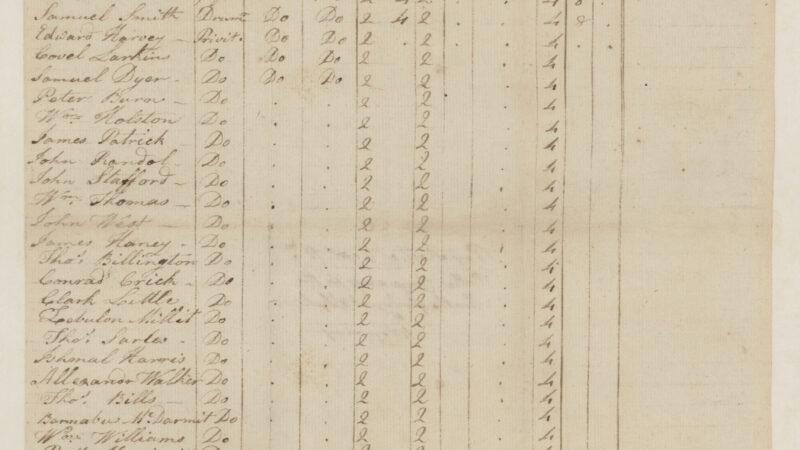 Samuel Smith Drumr Do Do 2 4 2 . . 4 8
Edward Harvey – Privit. Do Do 2 . 2 . . 4 . .
Covel Larkins Do Do Do 2 2 . 4
Samuel Dyer . Do Do Do 2 2 . 4
Peter Burn – Do . . 2 2 . 4
Wm Holston Do . . 2 2 . 4
James Patrick . Do . . 2 2 . 4
John Randol . Do . . 2 2 . 4
John Stafford – Do . . 2 2 . 4
Wm Thomas – Do . . 2 2 . 4
John West – Do . . 2 2 . 4
James Haney . Do . . 2 2 . 4
Thos Billington Do . . 2 2 . 4
Conrad Crick . Do . . 2 2 . 4
Clark Little Do . . 2 2 . 4
Zebulon Millit Do . . 2 2 . 4
Thos Sarles . Do . . 2 2 . 4
Ishmal Harris Do . . 2 2 . 4
Allexandr Walker Do . . 2 2 . 4
Thos Bills – Do . . 2 2 . 4
Barnabus McDarmit Do . . 2 2 . 4
Wm Williams Do . . 2 2 . 4